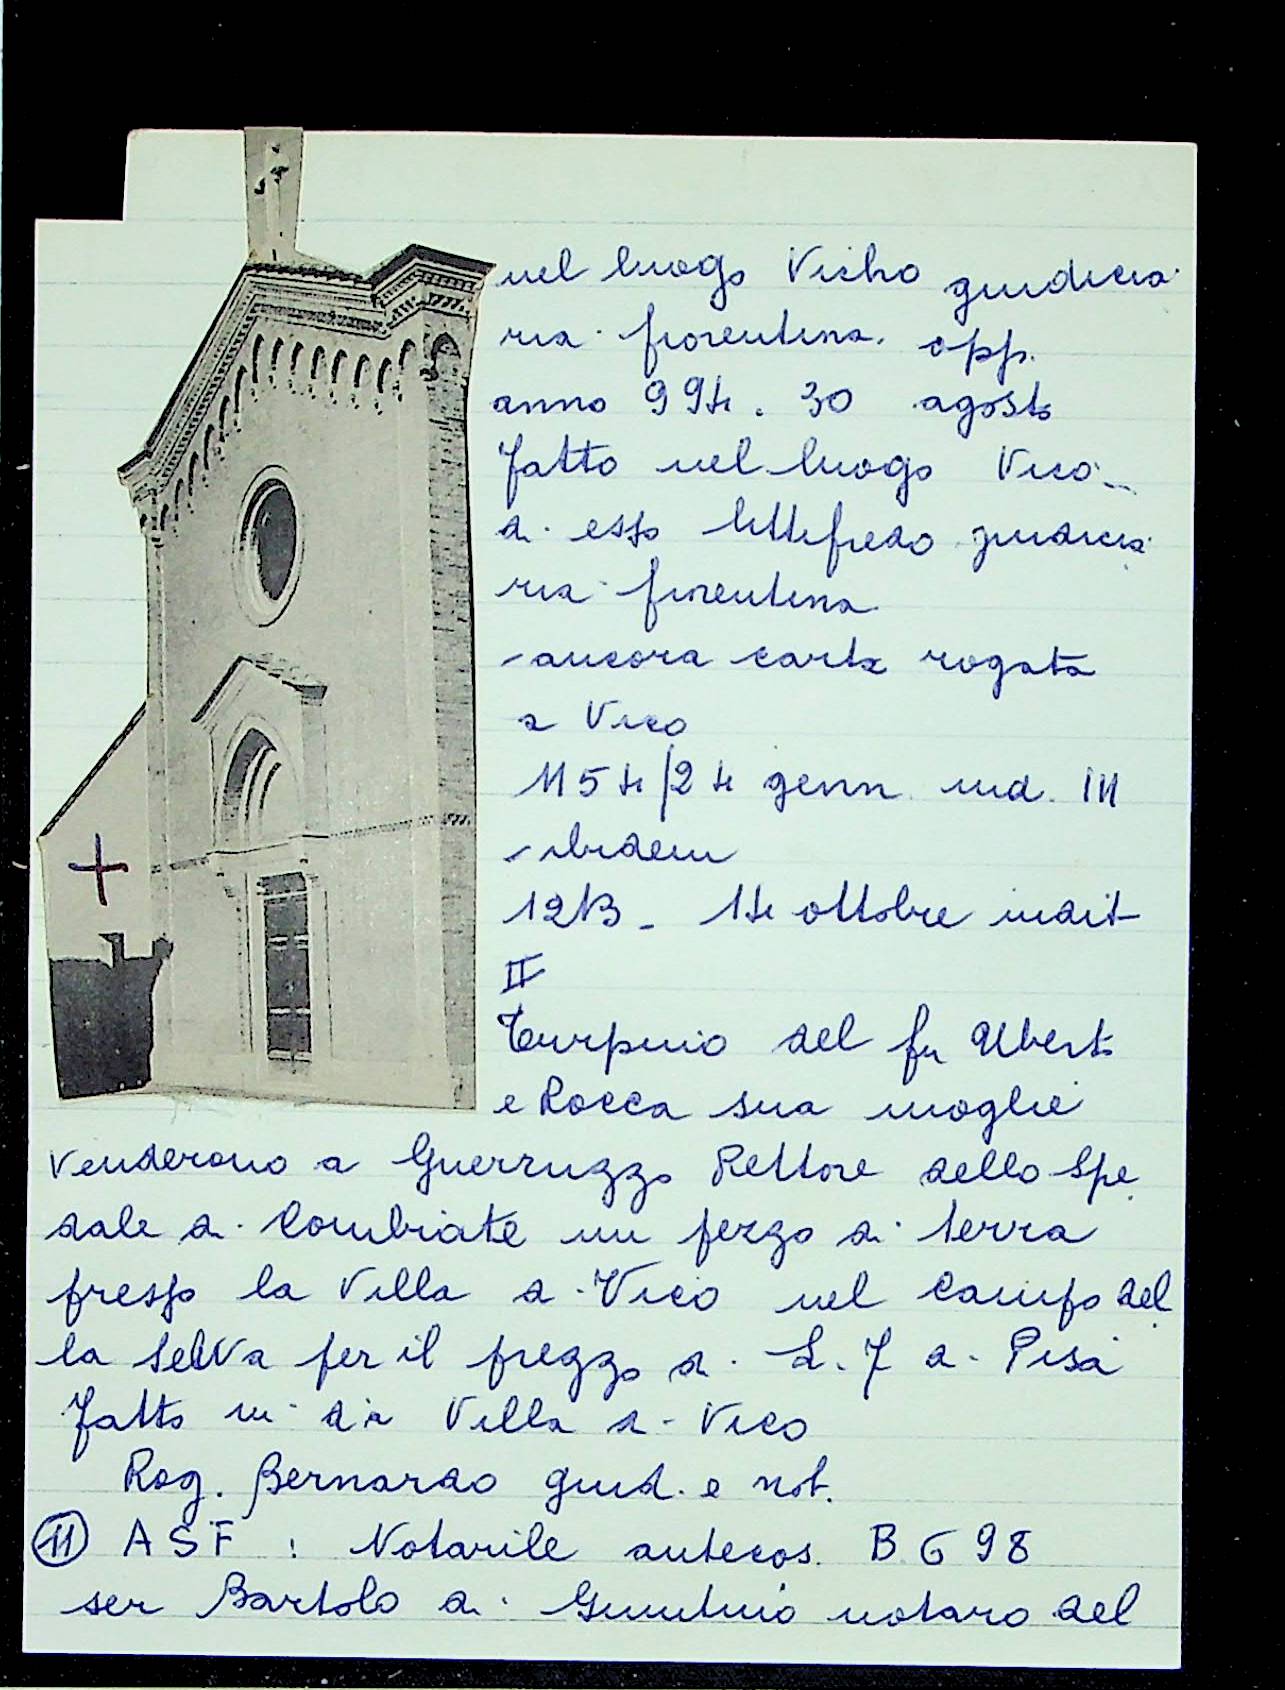 nel luogo Vicho giudicia
ria fiorentina. opp.
anno 994. 30 agosto
fatto nel luogo Vico
di esso littifredo giudicia
ria fiorentina
- ancora carta rogata
a Vico
1154/24 genn. ind. III
- ibidem
1213 - 14 ottobre indit
II
Turpinio del fu Uberto
e Rocca sua moglie
venderono a Guerruzzo Rettore dello Spe
dale di Combiate un pezzo di terra
presso la Villa di Vico nel Campo del
la Selva per il prezzo di L. 7 di Pisa
fatto in dta Villa di Vico
Rog. Bernardo giud. e not.
11 ASF : Notarile antecos. B 698
ser Bartolo di Giuntino notaro del